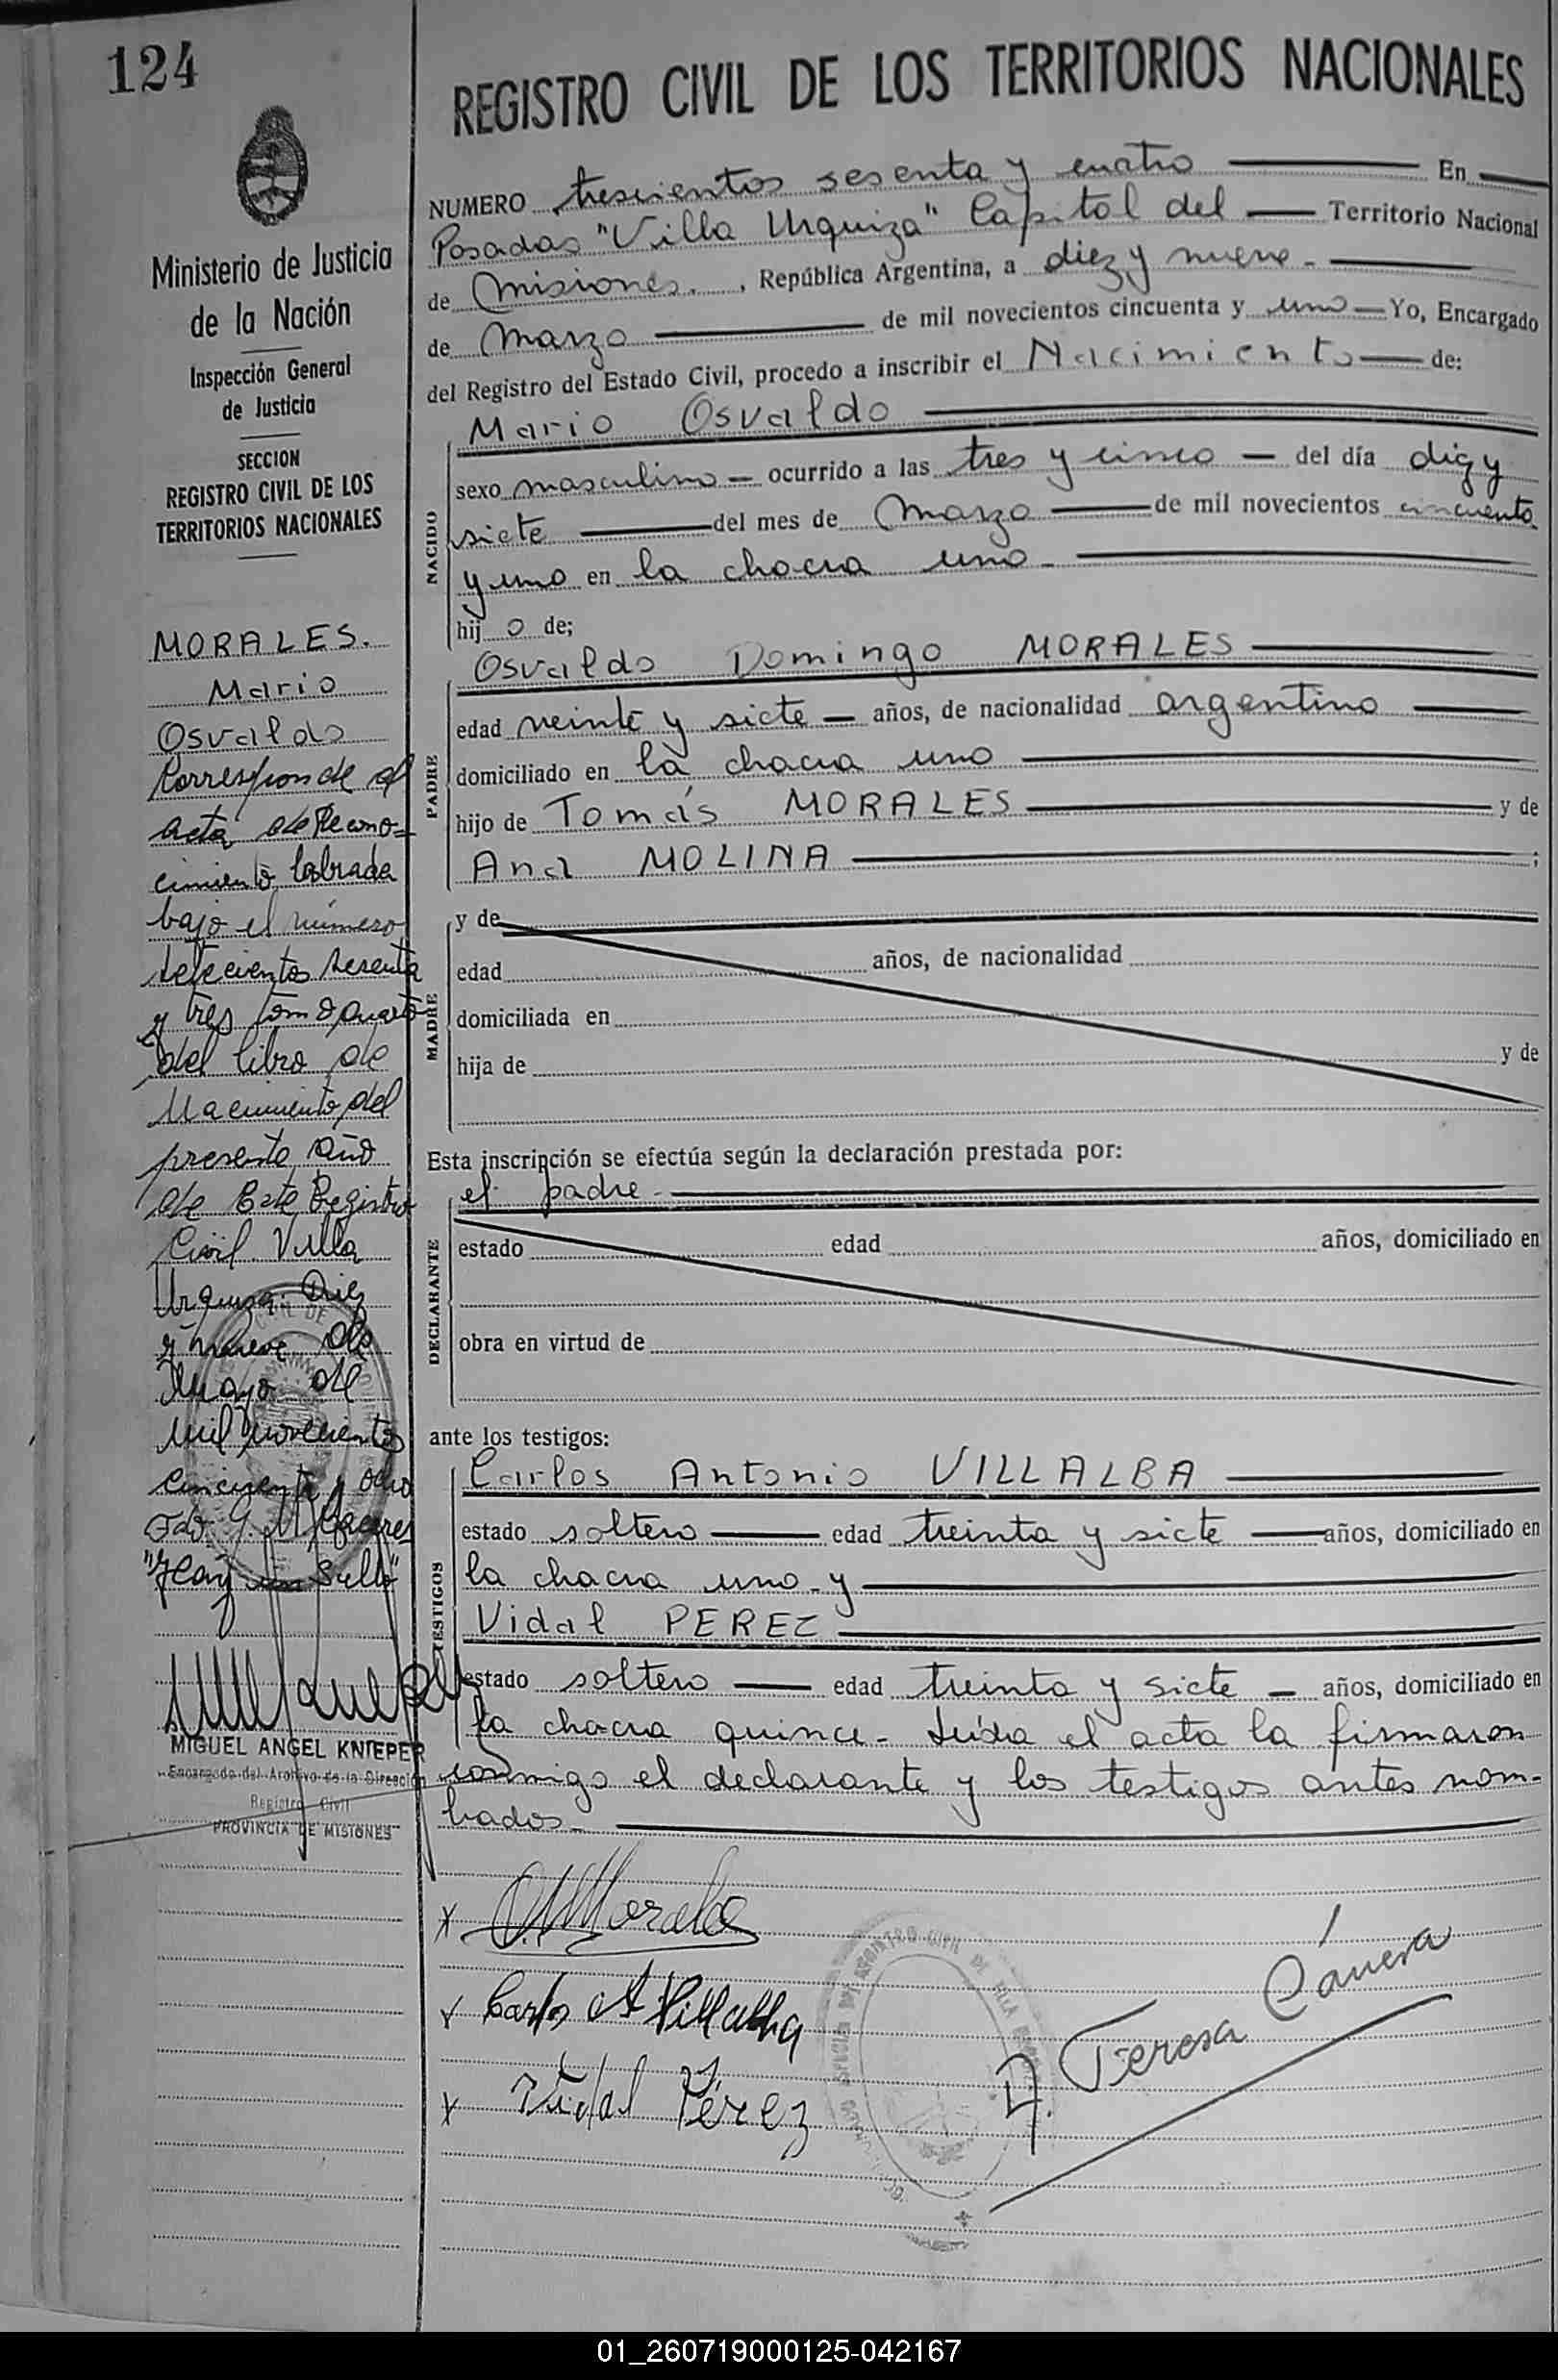 124
REGISTRO CIVIL DE LOS TERRITORIOS NACIONALES
Ministerio de Justicia
de la Nación
Inspección General
de Justicia
SECCION
REGISTRO CIVIL DE LOS
TERRITORIOS NACIONALES
MORALES.
Mario
Osvaldo
Corresponde al
acta de Recono-
cimiento labrada
bajo el número
setecientos sesenta
y tres tomo cuarto
del libro de
Nacimiento del
presente año
de Este Registro
Civil Villa
Urquiza. Diez
y nueve de
Mayo de
mil novecientos
cincuenta y ocho
Fdo.
"Hay un Sello"
MIGUEL ANGEL KNIEPER
Encargado del Archivo de la Dirección
Registro Civil
PROVINCIA DE MISIONES
NUMERO trescientos sesenta y cuatro En
Posadas "Villa Urquiza" Capital del Territorio Nacional
de Misiones. , República Argentina, a diez y nueve
de Marzo de mil novecientos cincuenta y uno Yo, Encargado
del Registro del Estado Civil, procedo a inscribir el Nacimiento de:
NACIDO
Mario Osvaldo
sexo masculino ocurrido a las tres y cinco del día diez y
siete del mes de Marzo de mil novecientos cincuenta
y uno en la chacra uno
hij o de;
PADRE
Osvaldo Domingo MORALES
edad veinte y siete años, de nacionalidad argentino
domiciliado en la chacra uno
hijo de Tomás MORALES y de
Ana MOLINA ;
MADRE
y de
edad años, de nacionalidad
domiciliada en
hija de y de
Esta inscripción se efectúa según la declaración prestada por:
DECLARANTE
el padre
estado edad años, domiciliado en
obra en virtud de
ante los testigos:
TESTIGOS
Carlos Antonio VILLALBA
estado soltero edad treinta y siete años, domiciliado en
la chacra uno y
Vidal PEREZ
estado soltero edad treinta y siete años, domiciliado en
la chacra quince. Leída el acta la firmaron
conmigo el declarante y los testigos antes nom-
brados.
x O. Morales
x Carlos A Villalba
x Vidal Pérez
Teresa Cámera
01_260719000125-042167